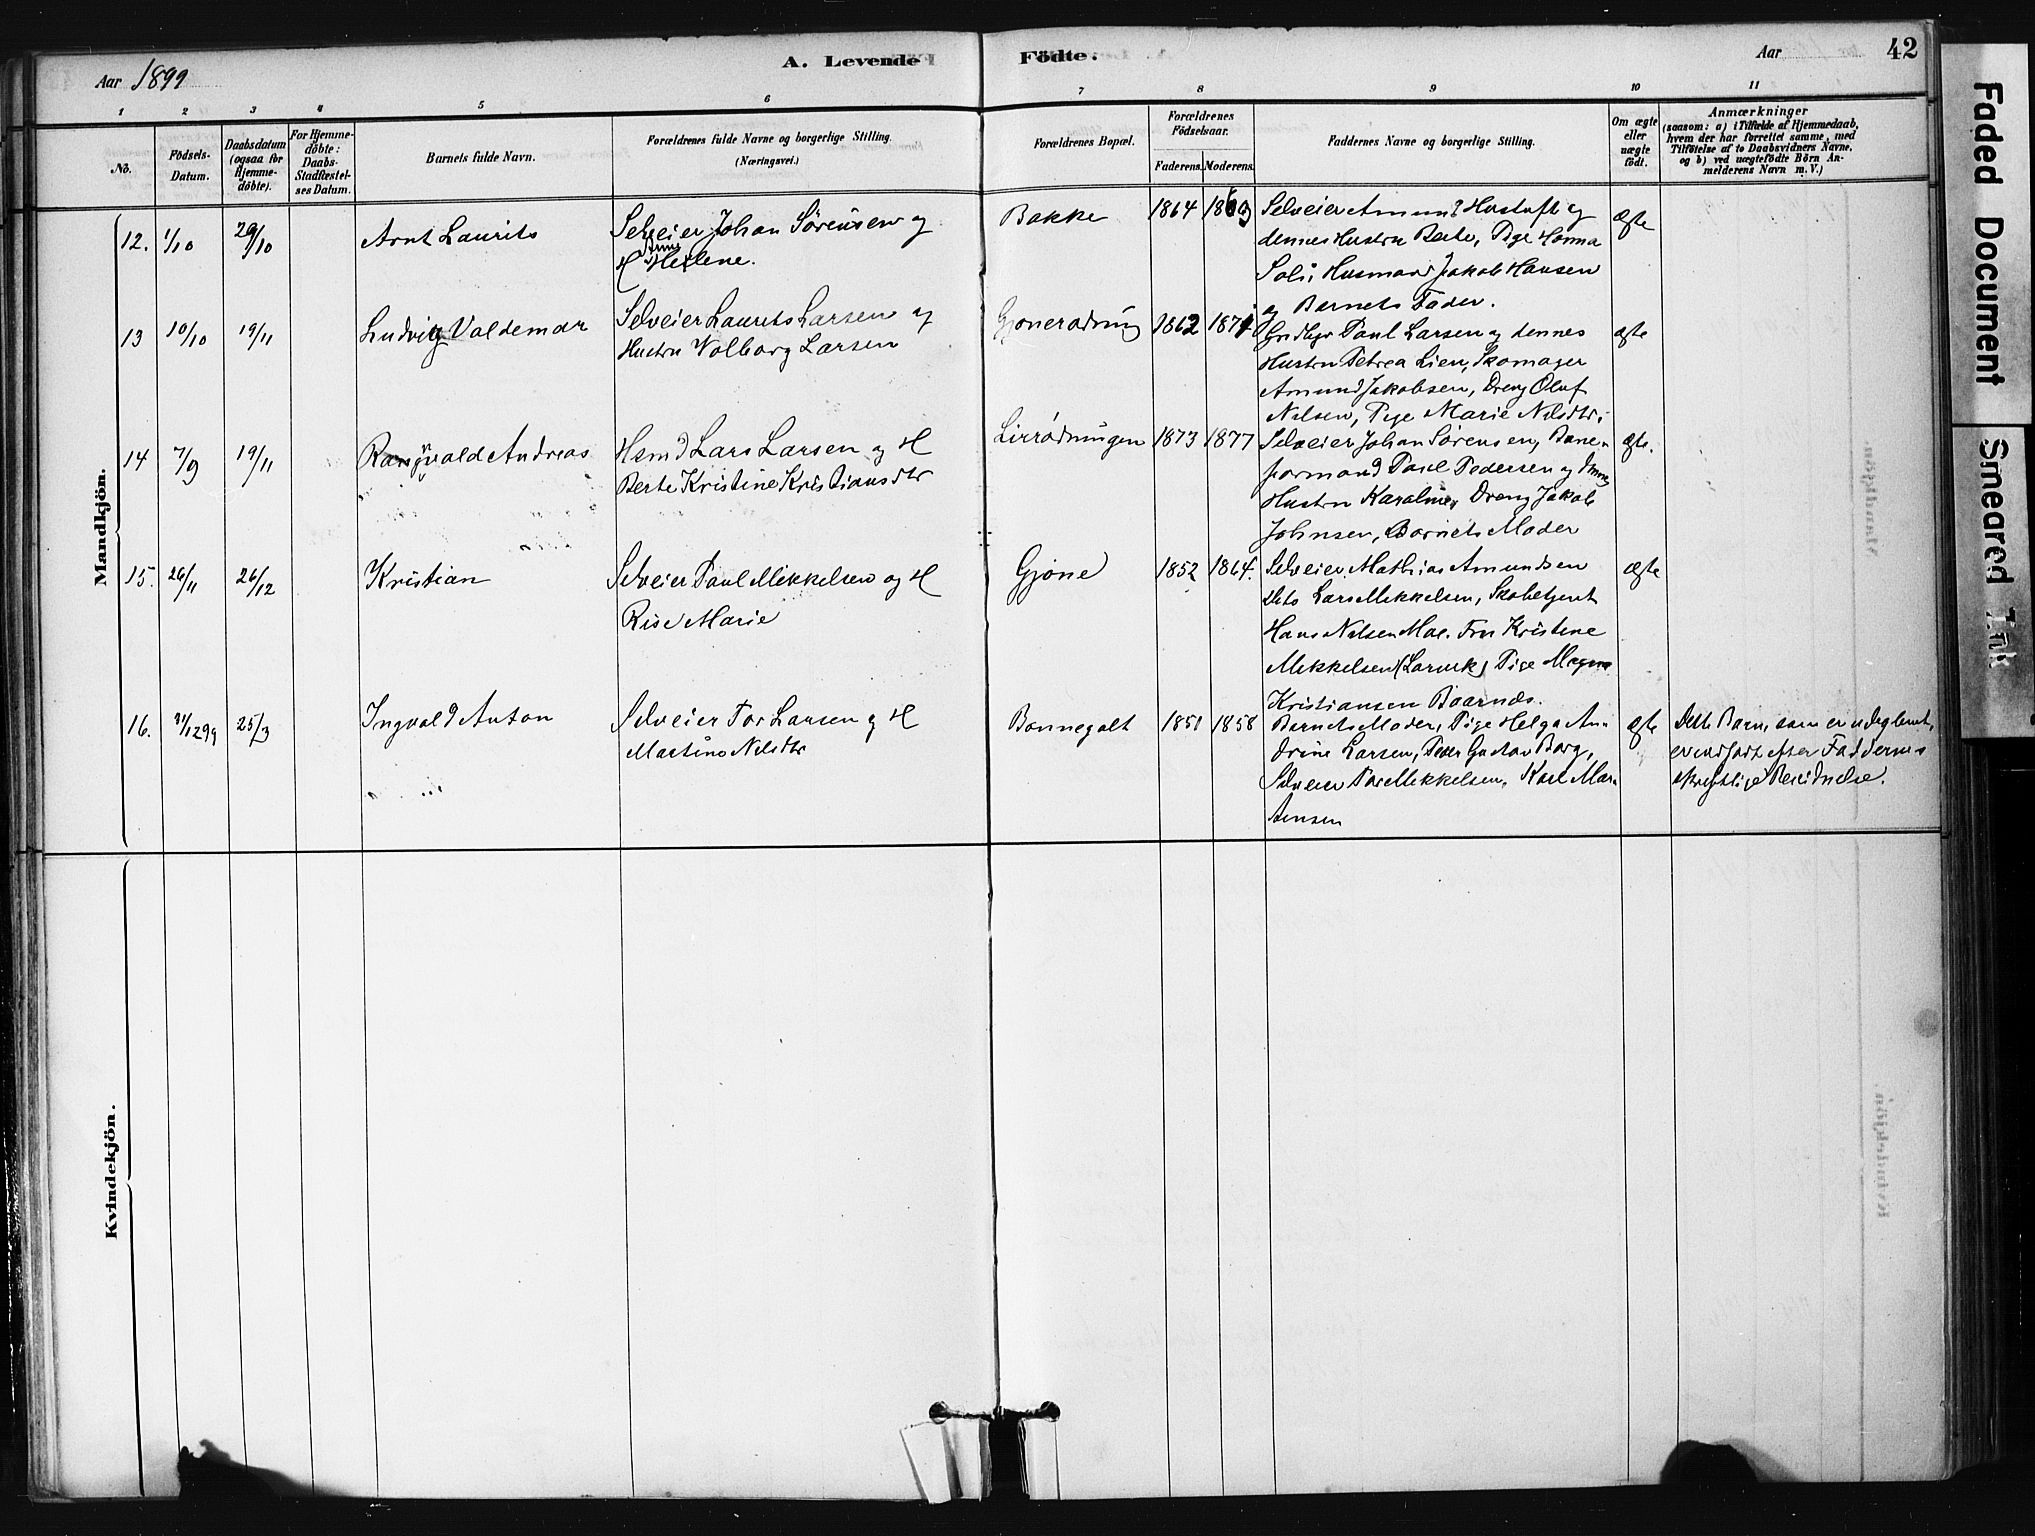 Aar 1899
A. Levende
Födte.
Aar
42
1 2 3 4 5 6 7 8 9 10 11
No.
Födsels-Datum.
Daabsdatum (ogsaa for Hjemmedöbte).
For Hjemmedöbte: Daabs-Stadfæstelses Datum.
Barnets fulde Navn.
Forældrenes fulde Navne og borgerlige Stilling.
(Næringsvei.)
Forældrenes Bopæl.
Forældrenes Födselsaar.
Faderens. Moderens.
Faddernes Navne og borgerlige Stilling.
Om ægte eller uægte födt.
Anmærkninger
(saasom: a) i Tilfælde af Hjemmedaab, hvem der har forrettet samme, med Tilföielse af to Daabsvidners Navne, og b) ved uægtefödte Börn Anmelderens Navn m. V.)
Mandkjön.
12. 1/10 29/10 Arnt Laurits
Selveier Johan Sörensen og
H Anne Helene.
Bakke 1864 1863
Selveier Amund Hustuft og
dennes Hustru Berte, Pige Hanna
Soli, Husmand Jakob Hansen
og Barnets Fader.
ægte
13 10/10 19/11 Ludvig Valdemar
Selveier Laurits Larsen og
Hustru Volborg Larsen
Gjonerødning 1862 1871
Grdbgr Paul Larsen og dennes
Hustru Petrea Lien, Skomager
Amund Jakobsen, Dreng Oluf
Nilsen, Pige Marie Nilsdtr.
ægte
14 7/9 19/11 Rangvald Andreas
Hsmd Lars Larsen og H
Berte Kristine Kristiansdtr
Lirrødningen 1873 1877
Selveier Johan Sörensen, Baneformand Paul Pedersen og dennes
Hustru Karoline, Dreng Jakob
Johnsen, Barnets Moder
ægte.
15. 26/11 26/12 Kristian
Selveier Paul Mikkelsen og H
Rise Marie
Gjone 1852 1864.
Selveier Mathias Amundsen
Dito Lars Mikkelsen, Skobetjent
Hans Nilsen Moe. Fru Kristine
Mikkelsen (Larvik) Pige Magna
Kristiansen Boarnæs.
ægte
16. 31/12 99 25/3 Ingvald Anton
Selveier Tor Larsen og H
Martine Nilsdtr
Bonnegolt 1851 1858
Barnets Moder, Pige Helga Andrine Larsen, Peder Gustav Borg,
Selveier Tor Mikkelsen, Karl Martinsen
ægte
Dette Barn, som er udeglemt,
er indført efter Faddernes
skriftlige Bevidnelse.
Kvindekjön.
Faded Document
Smeared Ink